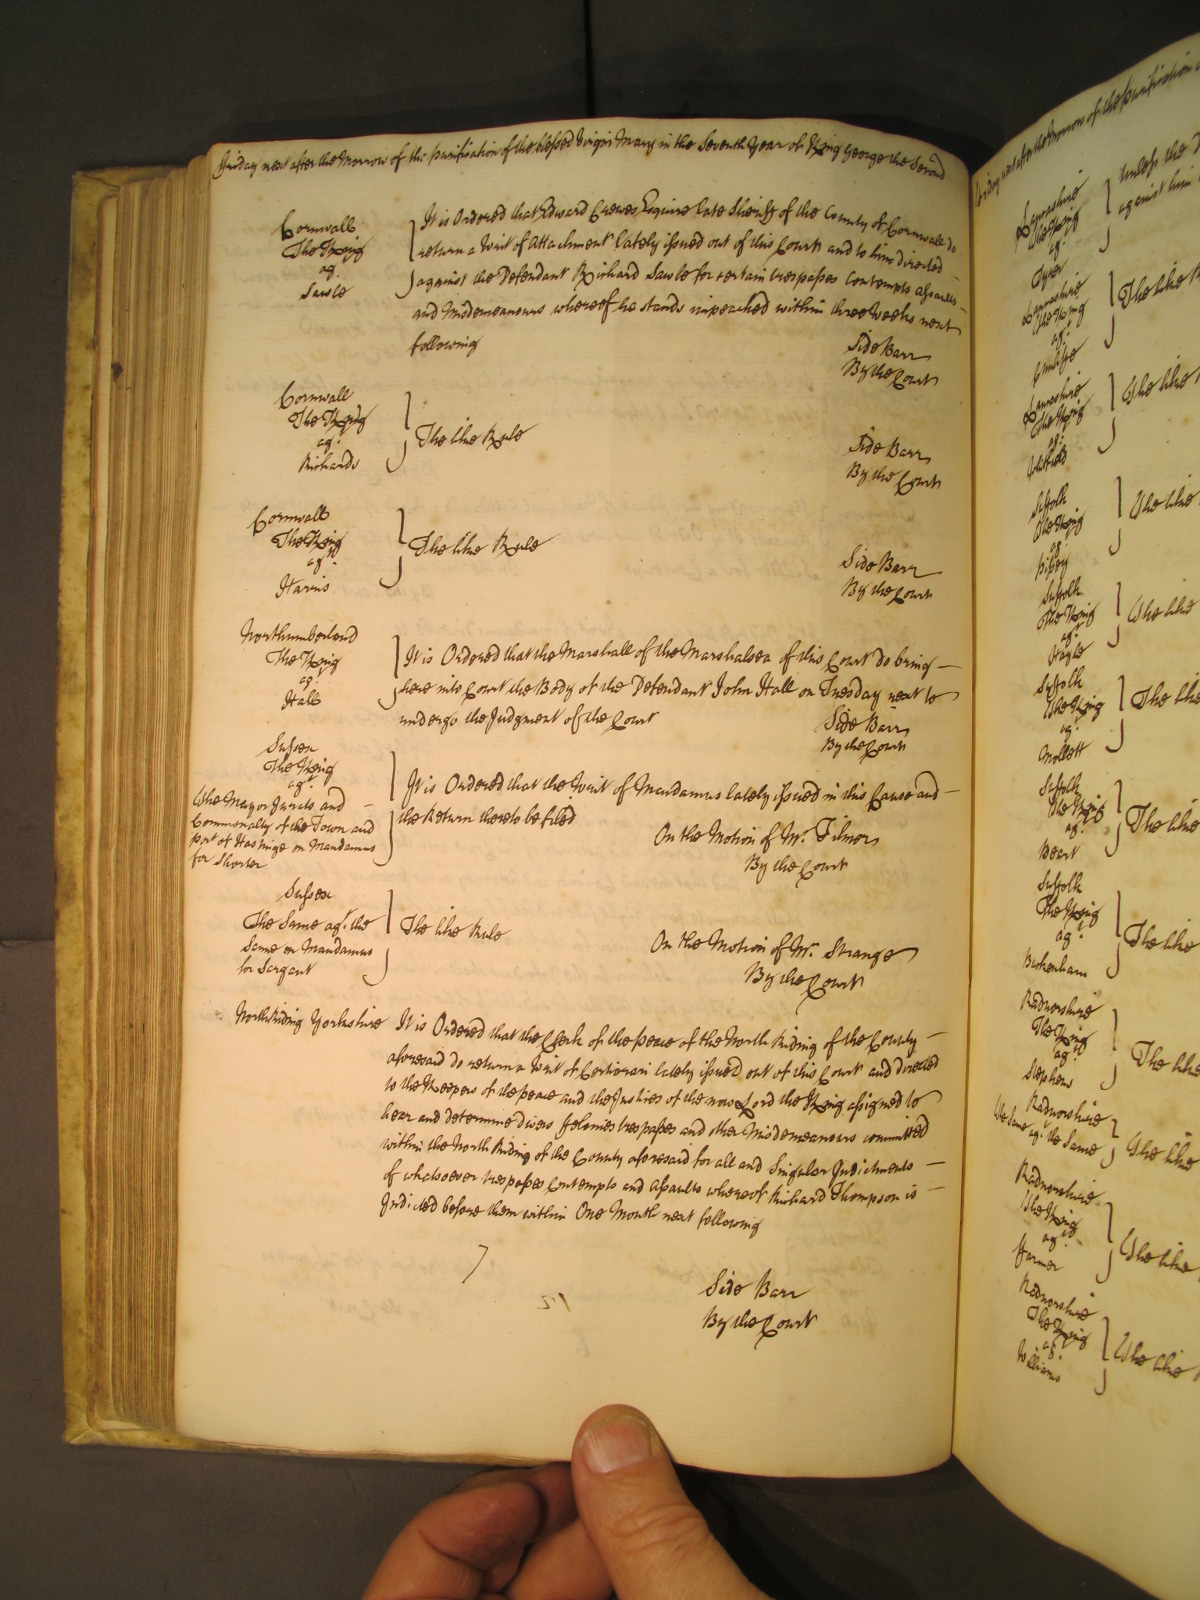 Friday next after the Morrow of the purification of the blessed Virgin Mary in the Seventh Year of King George the Second
Cornwall
The King
agt
Sawle
It is Ordered that Edward Esquire late Sheriff of the County of Cornwall do
return a Writ of Attachment lately issued out of this Court and to him directed
against the Defendant Richard Sawle for certain trespasses Contempts assaults
and Misdemeanours whereof he stands impeached within three Weeks next
following
Side Barr
By the Court
Cornwall
The King
agt
Richards
The like Rule
Side Barr
By the Court
Cornwall
The King
agt
Harris
The like Rule
Side Barr
By the Court
Northumberland
The King
agt
Hall
It is Ordered that the Marshall of the Marshalsea of this Court do bring
here into Court the Body of the Defendant John Hall on Tuesday next to
undergo the Judgment of the Court
Side Barr
By the Court
Sussex
The King
agt
The Mayor Jurats and
Commonalty of the Town and
port of Hastings on Mandamus
for Shorter
It is Ordered that the Writ of Mandamus lately issued in this Cause and
the Return thereto be filed
On the Motion of Mr. Filmer
By the Court
Sussex
The Same agt. the
Same on Mandamus
for Sargent
The like Rule
On the Motion of Mr. Strange
By the Court
North Riding Yorkshire
It is Ordered that the Clerk of the peace of the North Riding of the County
aforesaid do return a Writ of Certiorari lately issued out of this Court and directed
to the Keepers of the peace and the Justices of the now Lord the King assigned to
hear and determine divers felonies trespasses and other Misdemeanours committed
within the North Riding of the County aforesaid for all and Singular Indictments
of whatsoever trespasses Contempts and Assaults whereof Richard Thompson is
Indicted before them within One Month next following
Side Barr
By the Court
Friday next after the Morrow of the purification
The King
agt
Dyer
unless the
against him
The King
agt
The like
The King
agt
The like
Suffolk
The King
agt
The like
Suffolk
The King
agt
The like
Suffolk
The King
agt
Mollett
The like
Suffolk
The King
agt
The like
Suffolk
The King
agt
Birkenham
The like
Radnorshire
The King
agt
Stephens
The like
Radnorshire
The Same agt the Same
The like
Radnorshire
The King
agt
Harmer
The like
Radnorshire
The King
agt
Williams
The like